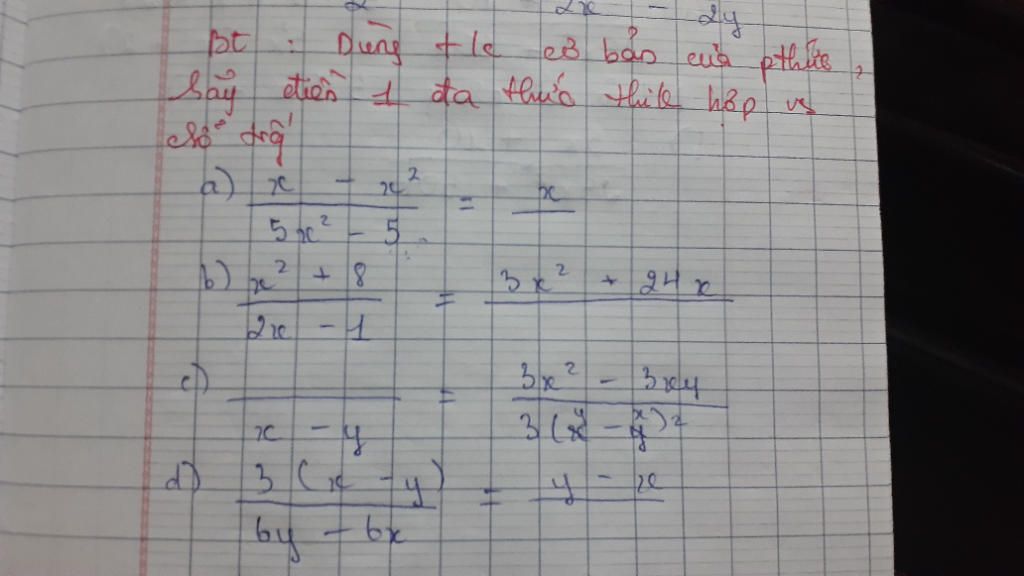 2 2x - 2y
Bt : Dùng t/c cơ bản của pthức,
hãy điền 1 đa thức thik hợp vs
chỗ trố'
a) \frac{x - x^2}{5x^2 - 5} = \frac{x}{}
b) \frac{x^2 + 8}{2x - 1} = \frac{3x^2 + 24x}{}
c) \frac{}{x - y} = \frac{3x^2 - 3xy}{3(y - x)^2}
d) \frac{3(x - y)}{6y - 6x} = \frac{y - x}{}